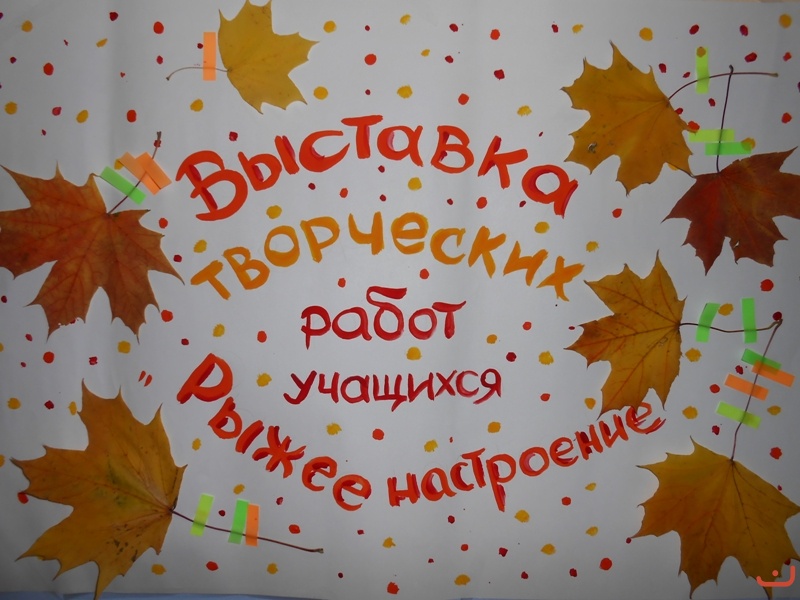 Выставка
творческих
работ
учащихся
Рыжее настроение